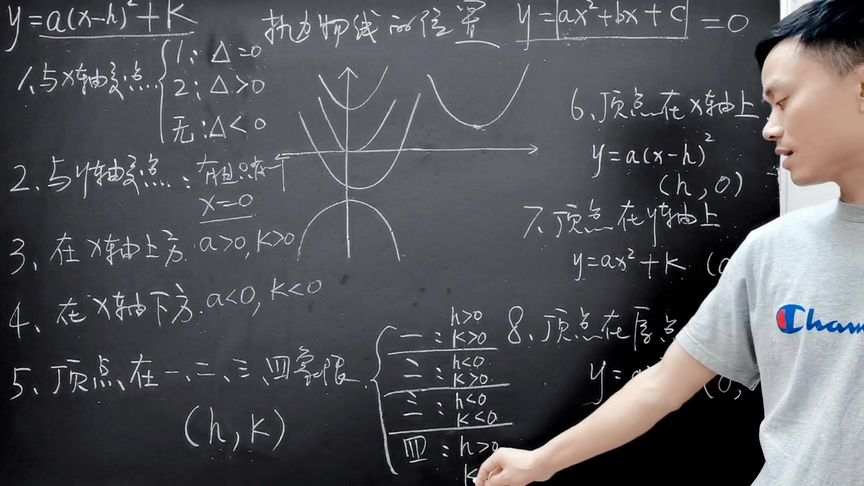 y=a(x-h)²+K
抛物线的位置
y=ax²+bx+c=0
1、与x轴交点
1:Δ=0
2:Δ>0
无:Δ<0
2、与y轴交点:有且只有一个
x=0
3、在x轴上方.a>0,K>0
4、在x轴下方.a<0,K<0
5、顶点在一、二、三、四象限
(h,K)
一:h>0
K>0
二:h<0
K>0
三:h<0
K<0
四:h>0
K
6、顶点在x轴上
y=a(x-h)²
(h,0)
7、顶点在y轴上
y=ax²+K
8、顶点在原点
y=
(0,
Cham